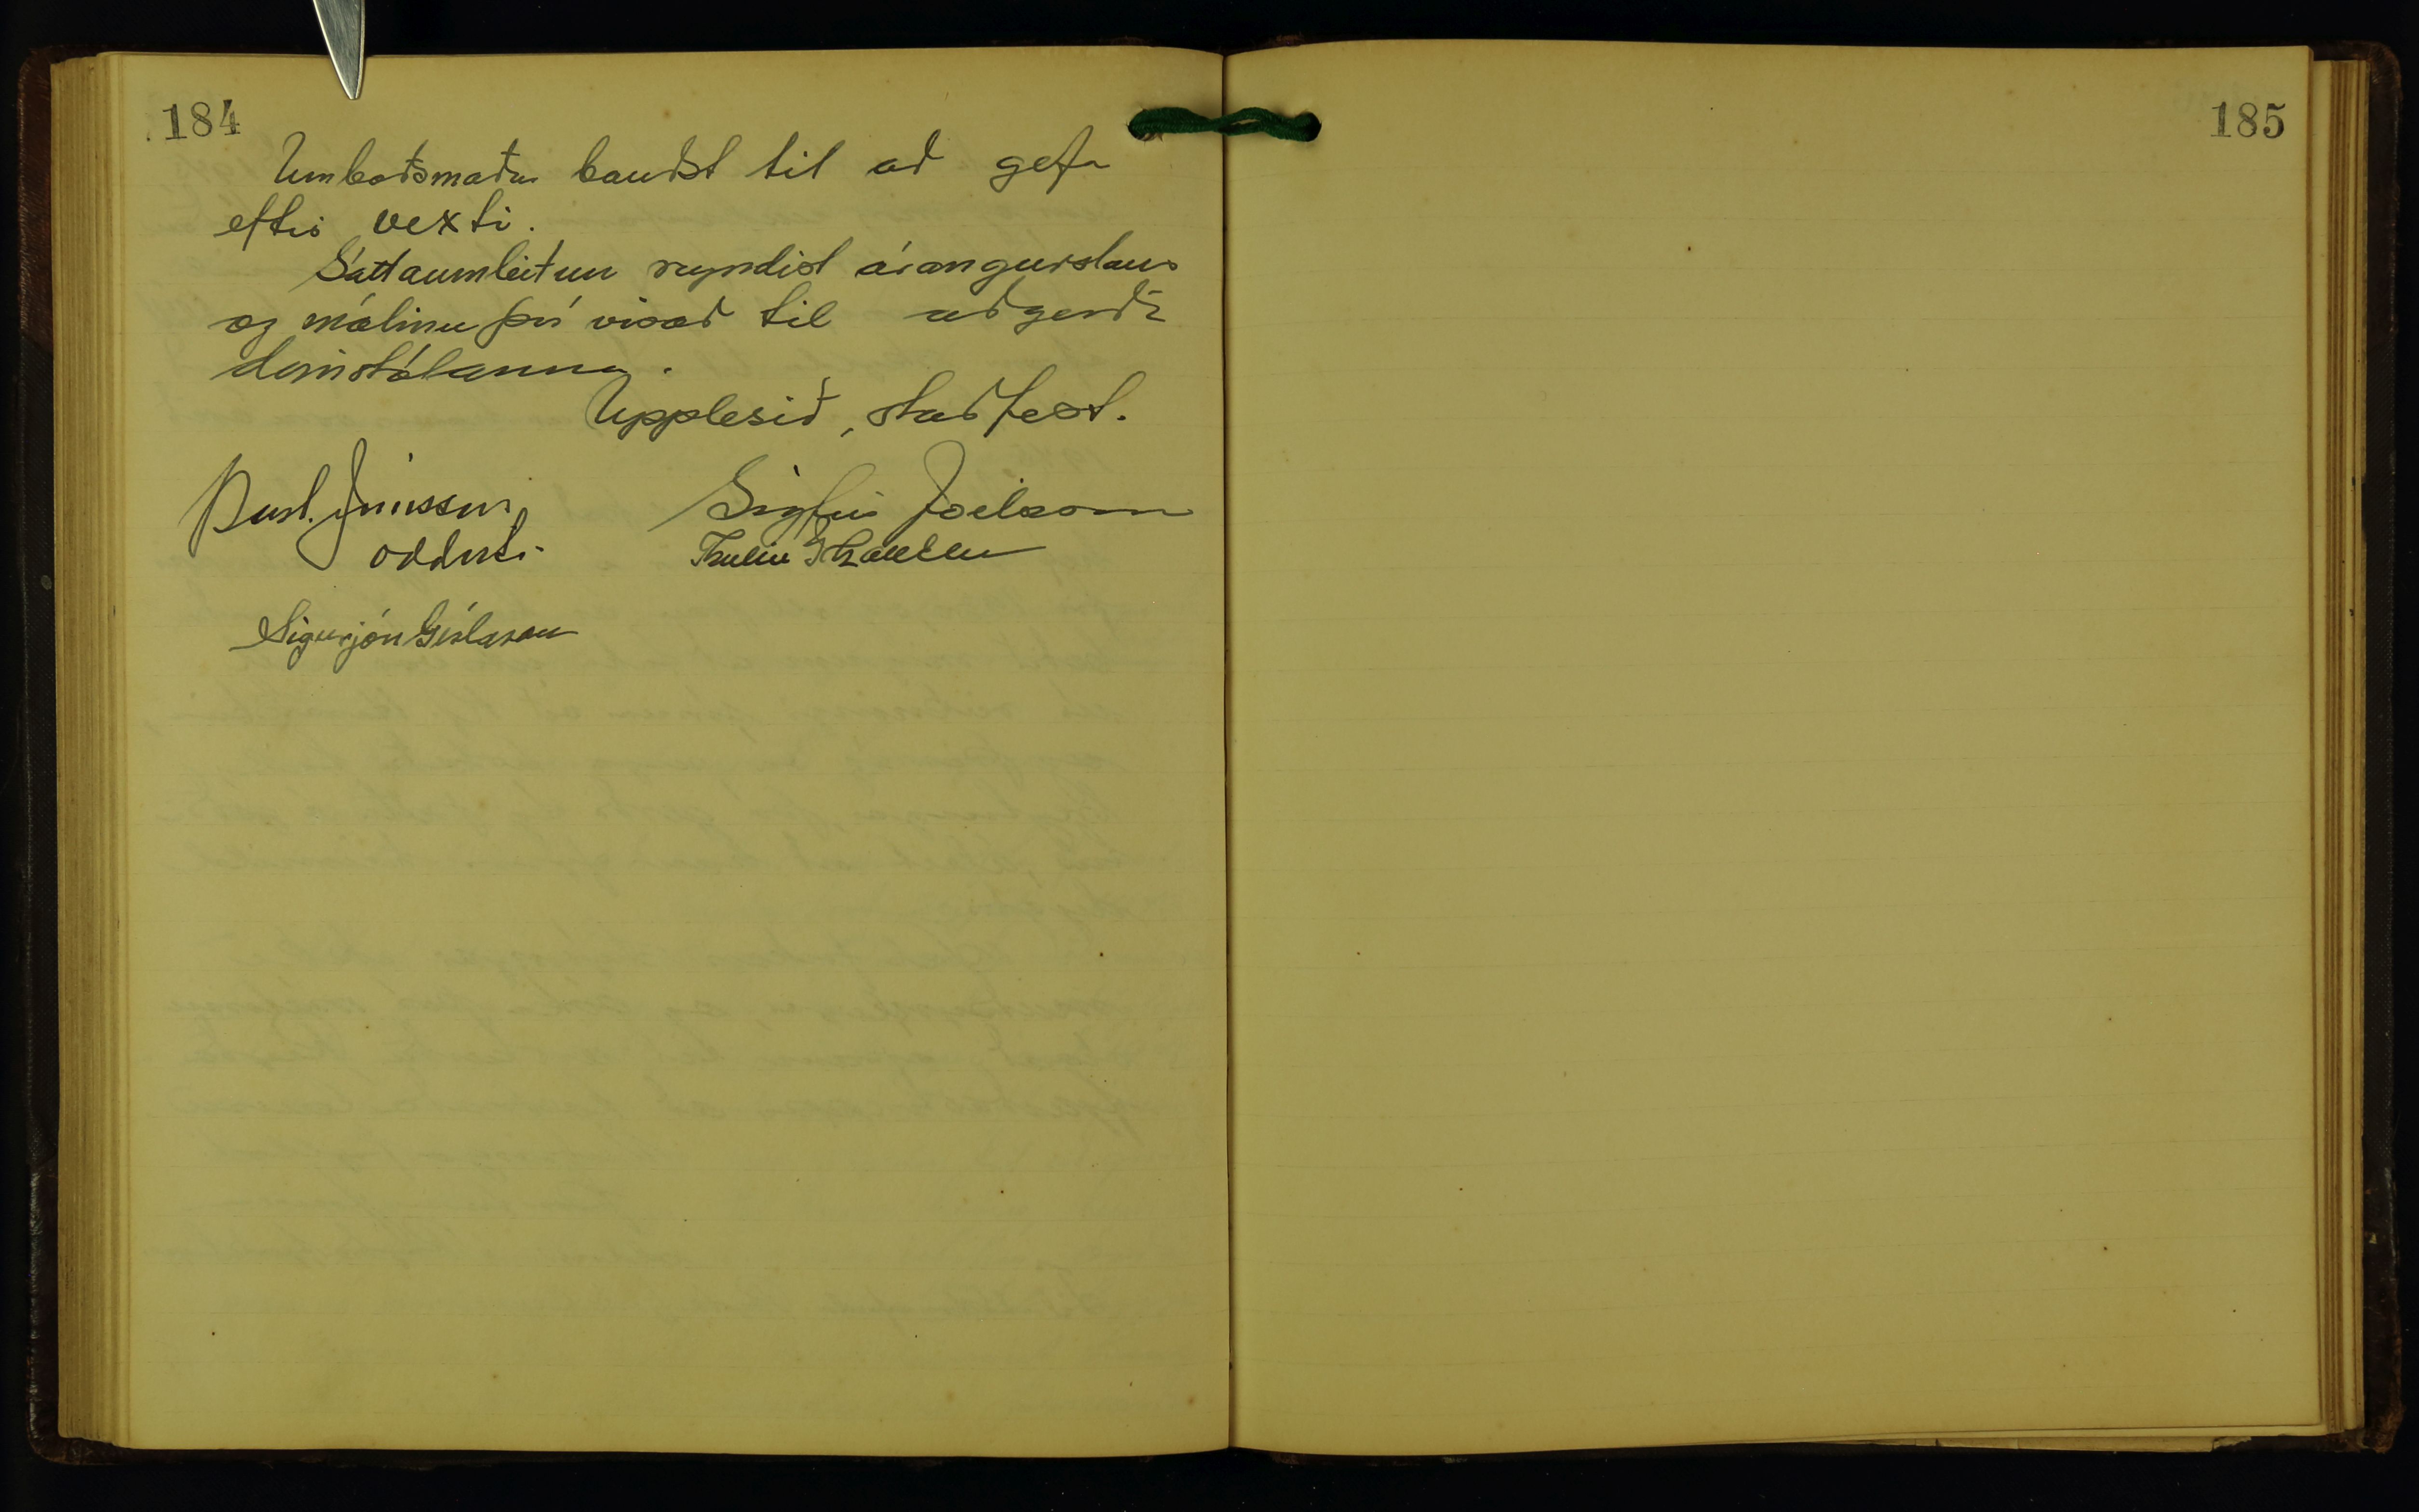 184
Umboðsmaður bauðst til að gefa
eftir vexti.
Sáttaumleitun reyndist árangurslaus
og málinu því vísað til aðgerða
dómstólanna.
Upplesið, staðfest.
Sigfús Jóelsson
oddviti
Sigurjón Gíslason
185